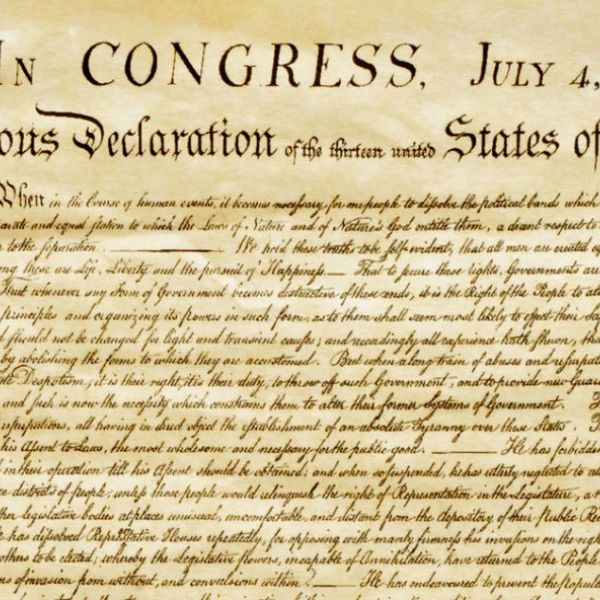 In CONGRESS, July 4,
ous Declaration of the thirteen united States of
When in the Course of human events, it becomes necessary for one people to dissolve the political bands which
arate and equal station to which the Laws of Nature and of Nature's God entitle them, a decent respect to
to the separation. We hold these truths to be self-evident, that all men are created eq
ong these are Life, Liberty and the pursuit of Happiness.— That to secure these rights, Governments are
That whenever any Form of Government becomes destructive of these ends, it is the Right of the People to al
principles and organizing its powers in such form, as to them shall seem most likely to effect their Sa
d should not be changed for light and transient causes; and accordingly all experience hath shewn, tha
by abolishing the forms to which they are accustomed. But when a long train of abuses and usurpat
Despotism, it is their right, it is their duty, to throw off such Government, and to provide new Guar
and such is now the necessity which constrains them to alter their former Systems of Government.
usurpations, all having in direct object the establishment of an absolute Tyranny over these States.
his Assent to Laws, the most wholesome and necessary for the public good. He has forbidden
in their operation till his Assent should be obtained; and when so suspended, he has utterly neglected to a
districts of people, unless those people would relinquish the right of Representation in the Legislature, a r
legislative bodies at places unusual, uncomfortable, and distant from the depository of their public Re
has dissolved Representative Houses repeatedly, for opposing with manly firmness his invasions on the righ
others to be elected; whereby the Legislative powers, incapable of Annihilation, have returned to the People
of invasion from without, and convulsions within. He has endeavoured to prevent the popula